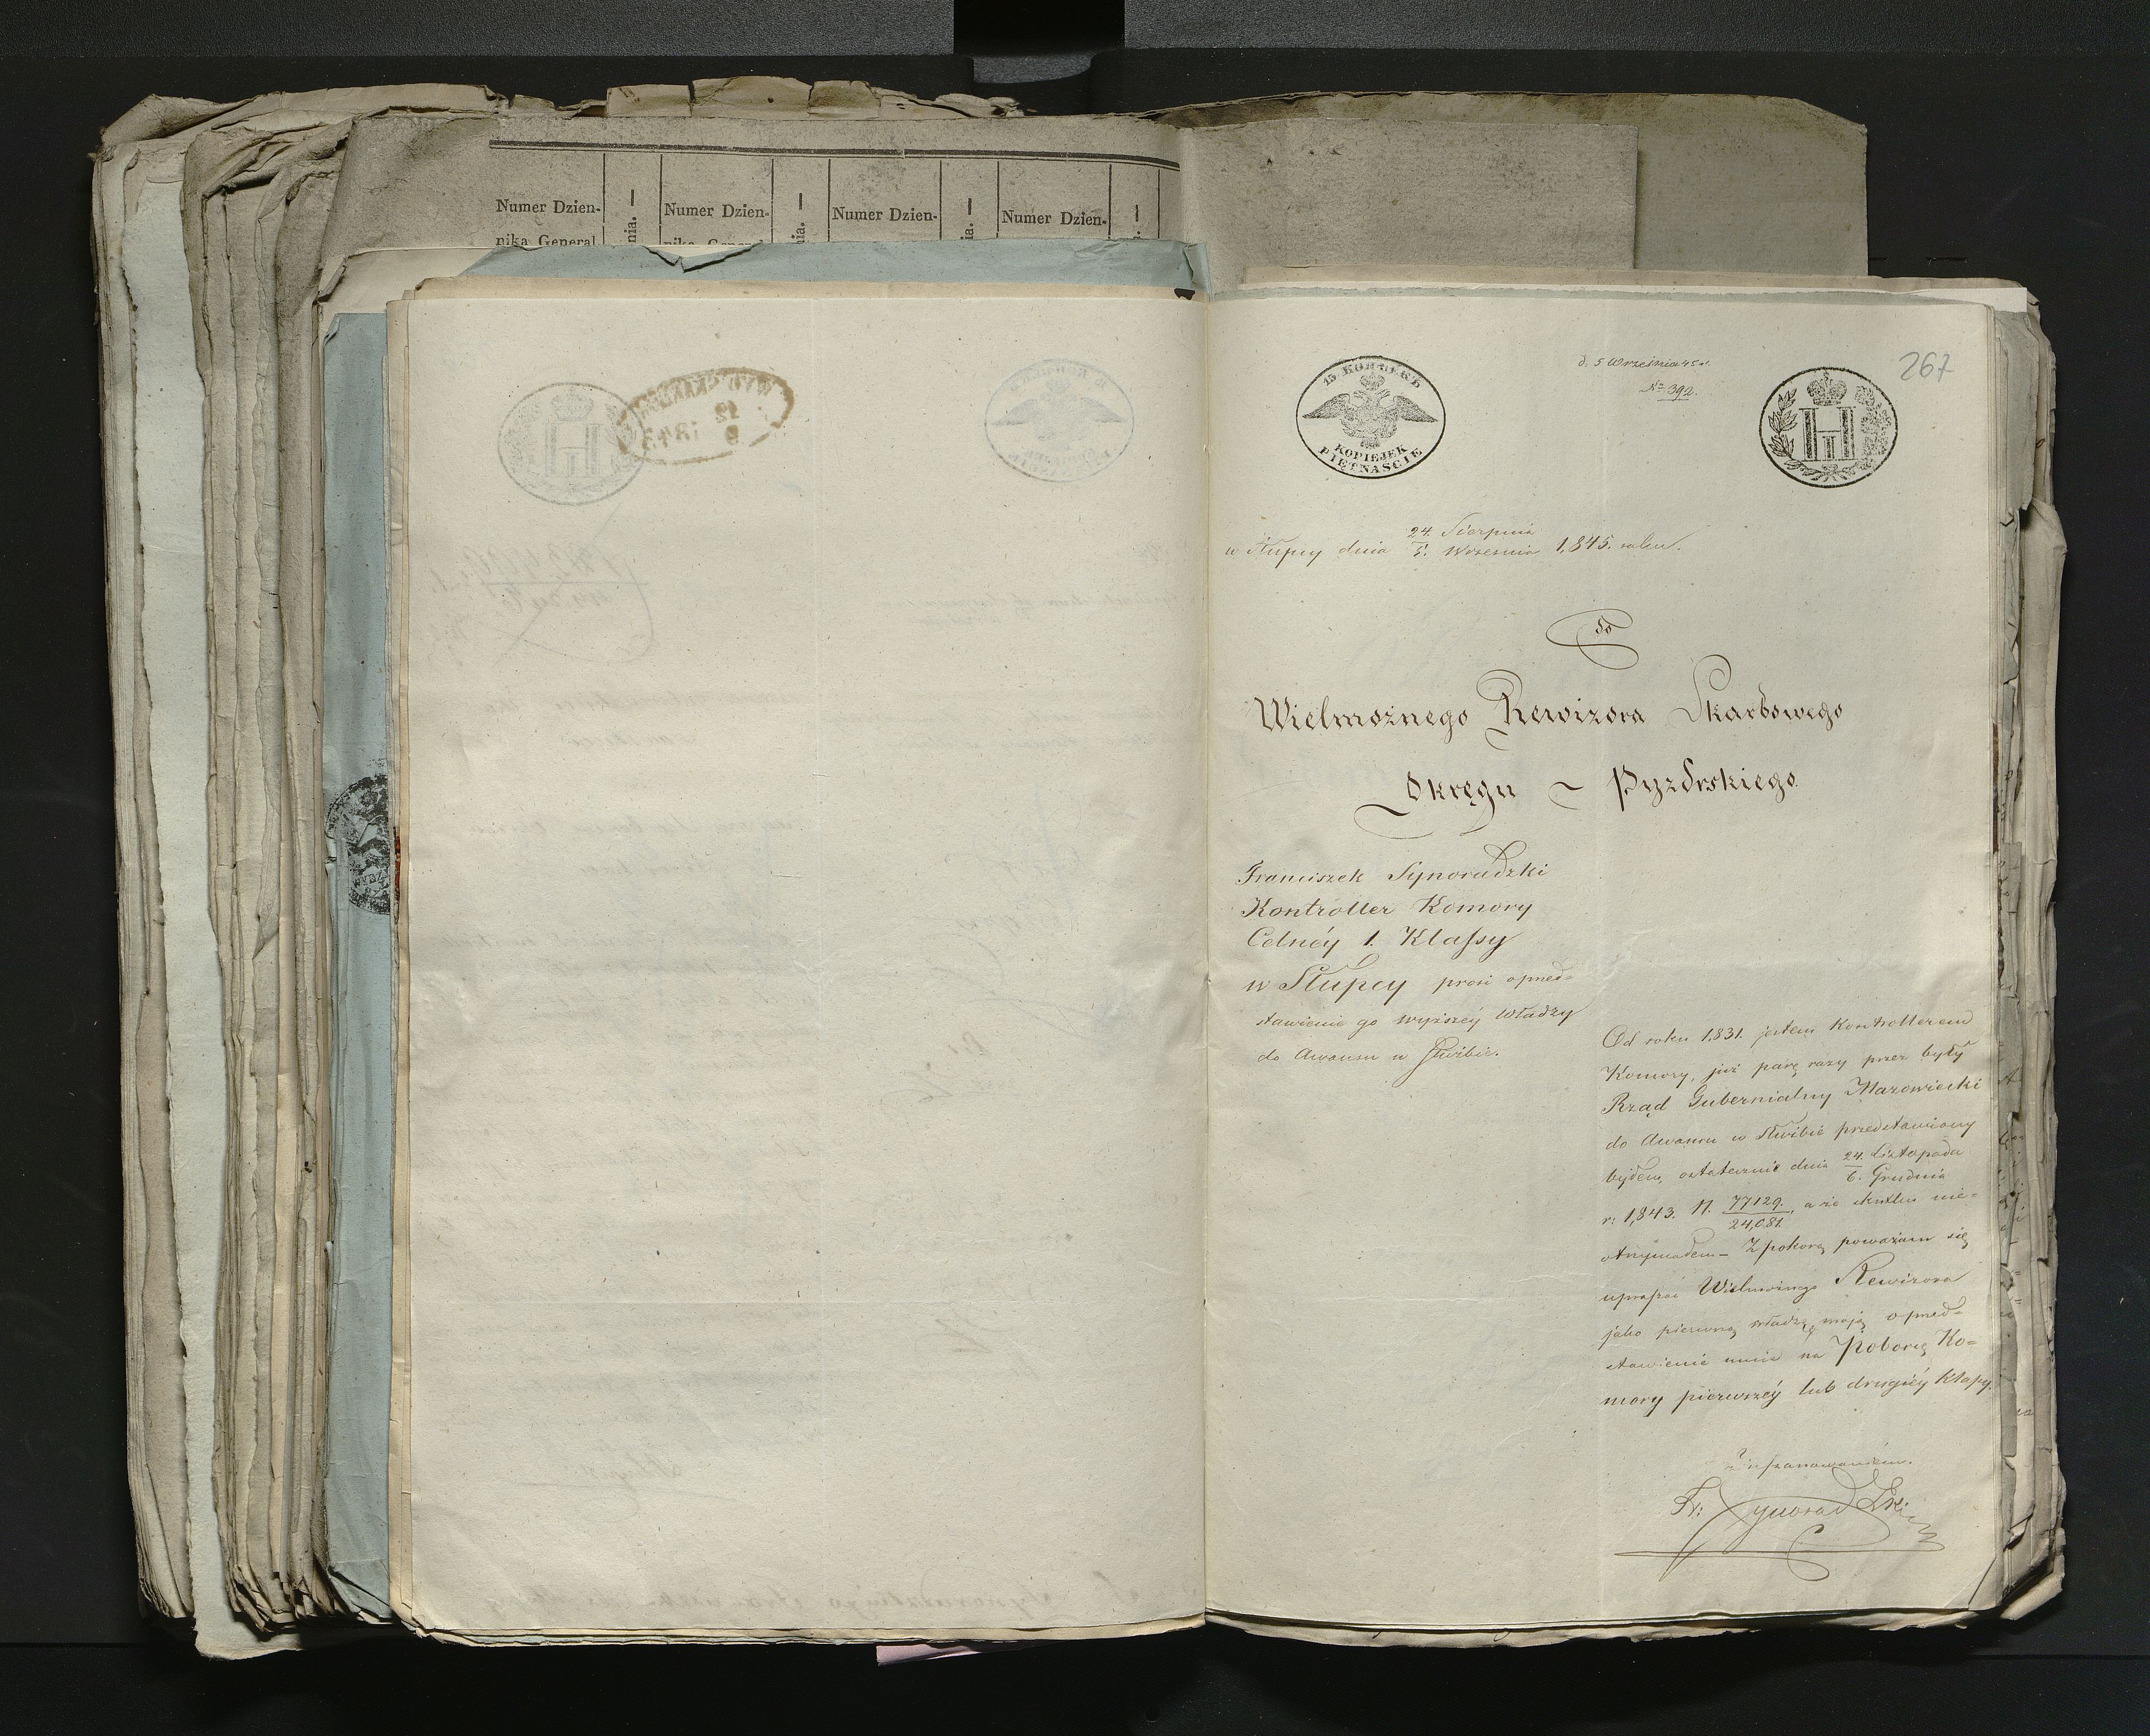 Numer Dzien-
nika General
nia.
Numer Dzien-
nika General
nia.
Numer Dzien-
ia.
Numer Dzien-
267
d. 5 Września 45 r.
№ 392.
15 КОПѢЕКЪ
KOPIEJEK
PIĘTNAŚCIE
H I
w Słupcy dnia 24. Sierpnia / 5. Września 1,845. roku.
Do
Wielmożnego Rewizora Skarbowego
Okręgu - Pyzdrskiego
Franciszek Synoradzki
Kontroller Komory
Celnéy 1. Klassy
w Słupcy prosi o przed=
stawienie go wyższéy Władzy
do Awansu w Służbie.
Od roku 1,831. jestem Kontrollerem
Komory, już parę razy przez były
Rząd Gubernialny Mazowiecki
do Awansu w Służbie przedstawiony
byłem, ostatecznie dnia 24. Listopada / 6. Grudnia
r: 1,843. N. 77129. / 24,081. a że skutku nie=
otrzymałem - Z pokorą poważam się
upraszać Wielmożnego Rewizora
jako pierwszą władzę moją o przed=
stawienie mnie na Poborcę Ko=
mory pierwszéy lub drugiéy Klassy.
Z uszanowaniem.
Fr: Synoradzki